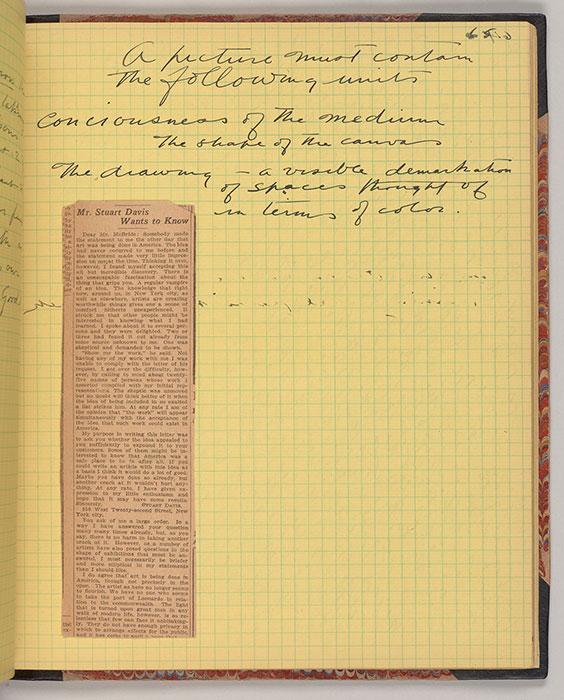 A picture must contain
the following units
Conciousness of the medium
The shape of the canvas
The drawing – a visible demarkation
of spaces thought of
in terms of color.
Mr. Stuart Davis
Wants to Know
Dear Mr. McBride: Somebody made
the statement to me the other day that
art was being done in America. The idea
had never occurred to me before and
the statement made very little impres-
sion on me at the time. Thinking it over,
however, I found myself accepting this
all but incredible discovery. There is
an unescapable fascination about the
thing that grips you. A regular vampire
of an idea. The knowledge that right
now, around us, in New York city, as
well as elsewhere, artists are creating
worthwhile things gives one a sense of
comfort hitherto unexperienced. It
struck me that other people might be
interested in knowing what I had
learned. I spoke about it to several per-
sons and they were delighted. Two or
three had found it out already from
some source unknown to me. One was
skeptical and demanded to be shown.
"Show me the work," he said. Not
having any of my work with me I was
unable to comply with the letter of his
request. I got over the difficulty, how-
ever, by calling to mind about twenty-
five names of persons whose work I
asserted compiled with my initial rep-
resentations. The skeptic was unmoved
but no doubt will think better of it when
the idea of being included in so exalted
a list strikes him. At any rate I am of
the opinion that "the work" will appear
simultaneously with the acceptance of
the idea that such work could exist in
America.
My purpose in writing this letter was
to ask you whether the idea appealed to
you sufficiently to expound it to your
customers. Some of them might be in-
terested to know that America was a
safe place to be in after all. If you
could write an article with this idea as
a basis I think it would do a lot of good.
Maybe you have done so already, but
another crack at it wouldn't hurt any-
thing. At any rate, I have given ex-
pression to my little enthusiasm and
hope that it may have some results.
Sincerely, STUART DAVIS.
356 West Twenty-second Street, New
York city.
You ask of me a large order. In a
way I have answered your question
many many times already, but, as you
say, there is no harm in taking another
crack at it. However, as a number of
artists have also posed questions in the
shape of exhibitions that must be an-
swered, I must necessarily be briefer
and more elliptical in my statements
than I should like.
I do agree that art is being done in
America, though not precisely in the
open. The artist as hero no longer seems
to flourish. We have no one who seems
to take the part of Leonardo in rela-
tion to the commonwealth. The light
that is turned upon great men in any
walk of modern life, however, is so re-
lentless that few can face it unblinking-
ly. They do not have enough privacy in
which to arrange effects for the public